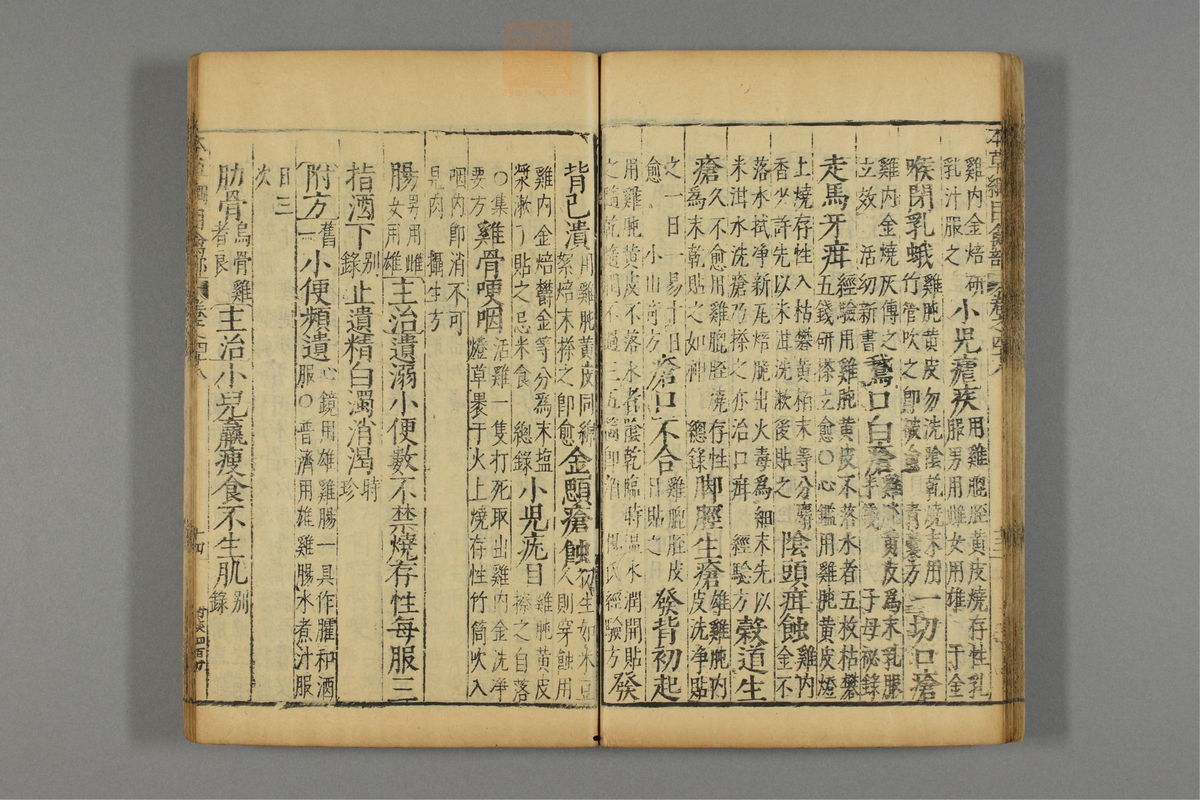 雞內金焙研乳汁服之 小兒瘧疾 用雞膍胵黃皮燒存性乳服男用雌女用雄 千金
喉閉乳蛾 雞肶黃皮勿洗陰乾燒末用竹管吹之即破愈 青囊方 一切口瘡
雞內金燒灰傅之立效 活幼新書 鵞口白瘡 雞肶黃皮為末乳服半錢 子母祕錄
走馬牙疳 經驗用雞肶黃皮不落水者五枚枯礬五錢研搽立愈○心鑑用雞肶黃皮燈
上燒存性入枯礬黃柏末等分麝香少許先以米泔洗漱後貼之 陰頭疳蝕 雞內金不
落水拭淨新瓦焙脆出火毒為細末先以米泔水洗瘡乃搽之亦治口疳 經驗方 穀道生
瘡 久不愈用雞膍胵燒存性為末乾貼之如神 總錄 脚脛生瘡 雄雞肶內皮洗淨貼
之一日一易十日愈 小山奇方 瘡口不合 雞膍胵皮日貼之 發背初起
用雞肶黃皮不落水者陰乾臨時溫水潤開貼之隨乾隨潤不過三五箇即消 楊氏經驗方 發
背已潰 用雞肶黃皮同綿絮焙末搽之即愈 金顋瘡蝕 初生如米豆久則穿蝕用
雞內金焙鬱金等分為末塩漿漱了貼之忌米食 總錄 小兒疣目 雞肶黃皮擦之自落
○集要方 雞骨哽咽 活雞一隻打死取出雞內金洗淨燈草裹于火上燒存性竹筒吹入
咽內即消不可見肉 攝生方
腸 男用雌女用雄 主治遺溺小便數不禁燒存性每服三
指酒下 別錄 止遺精白濁消渴 時珍
附方 舊一 小便頻遺 心鏡用雄雞腸一具作臛和酒服○普濟用雄雞腸水煮汁服
日三次
肋骨 烏骨雞者良 主治小兒羸瘦食不生肌 別錄
本草綱目禽部 卷之四十八 十四